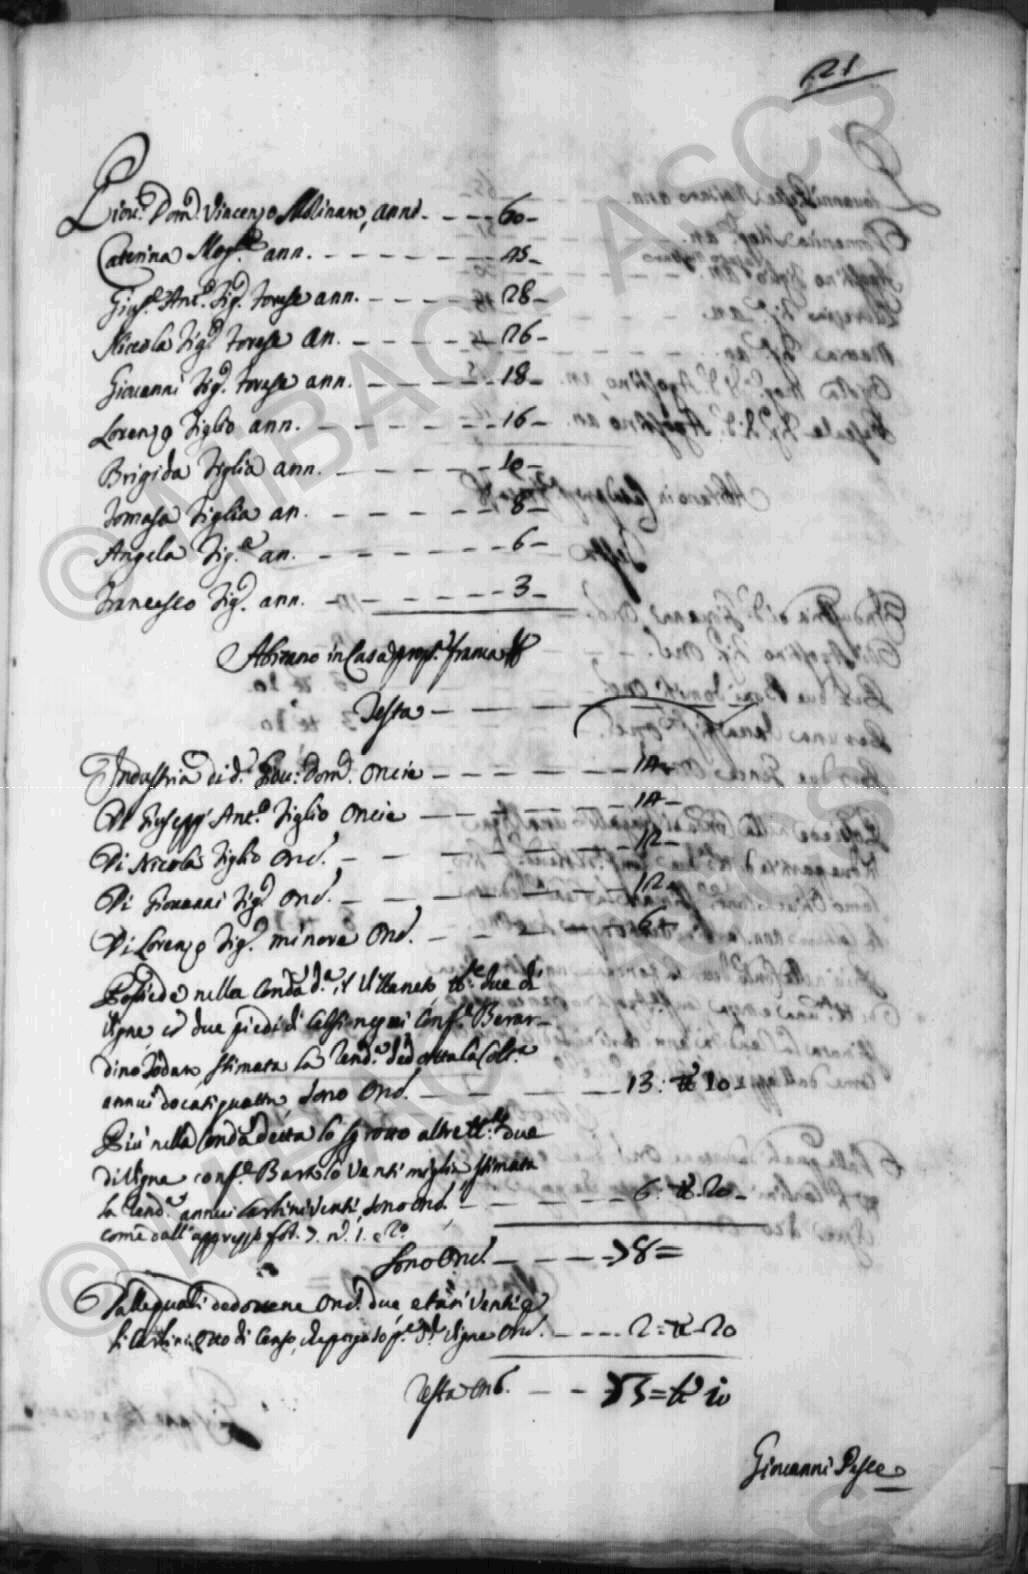 21
Giov: Dom.co Vincenzo Molinaro anni - - - 60 -
Caterina Mog.e ann. - - - - - - - 45 -
Gius.e Ant.o fig.o forese ann. - - - - - 28 -
Niccola fig.o forese an. - - - - - - 26 -
Giovanni fig.o forese ann. - - - - - 18 -
Lorenzo figlio ann. - - - - - - - 16 -
Brigida figlia ann. - - - - - - - 10 -
Tomasa figlia an. - - - - - - - 8 -
Angela fig.a an. - - - - - - - 6 -
Francesco fig.o ann. - - - - - - 3 -
Abitano in Casa prop.a franca
Testa - - - - - -
Industria di d.o Giov: Dom.co oncie - - - - - - 14 -
Di Giusepp' Ant.o figlio oncie - - - - - - 14 -
Di Nicola figlio onc. - - - - - - - 12 -
Di Giovanni fig.o onc. - - - - - - - 12 -
Di Lorenzo fig.o minore onc. - - - - - 6 -
Possiede nella Contrada d.a il Villaneto due di
Vigne con due piedi di Celsi neri conf.e Berar-
dino Todaro stimata la rend.a
annui docati quattro sono onc. - - - - - 13: t 10
Più nella Contrada detta lo altre due
di Vigna conf.e Bartolo Ventimiglia stimata
la rend.a annui Carlini Venti sono onc. - - - - 6: t 20 -
come dall'apprezzo fol. 7. n.o 1. e 2.o
Sono onc. - - - - 78 =
Dalle quali onc. due e tarì Venti
li Carlini otto di Censo, che paga Vigne onc. - - - - 2 = t 20
Resta onc. - - - 75 = t 10
Giovanni Pesce
© MiBAC - ASCS
© MiBAC - ASCS